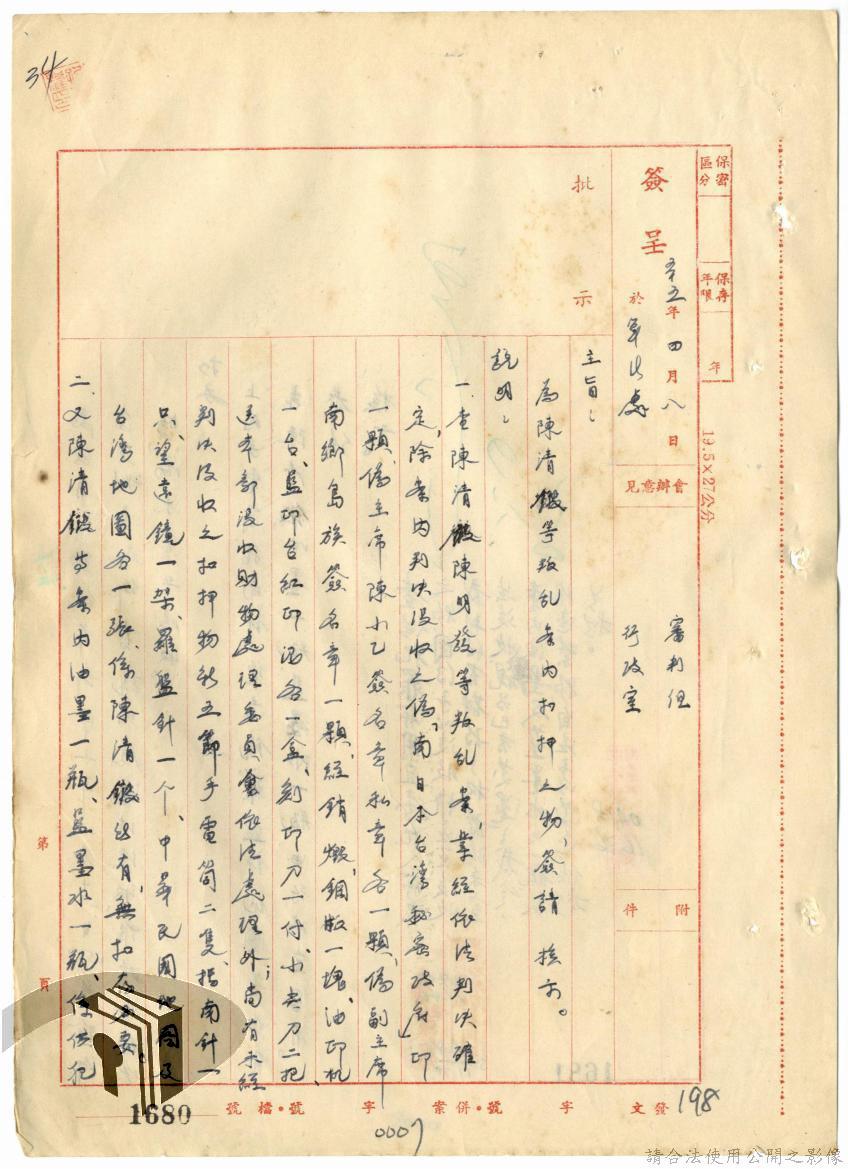 34
保密區分
保存年限
年
19.5×27公分
簽呈
五五年四月八日
於軍法處
會辦意見
審判組
行政室
附件
批示
主旨：
為陳清鍛等叛乱案内扣押之物，簽請 核示。
說明：
一、查陳清鍛陳明發等叛乱案，業經依法判決確
定，除案内判決沒收之偽「南日本台灣秘密政府」印
一顆，偽主席陳小乙簽名章私章各一顆，偽副主席
南鄉島族簽名章一顆，經銷燬，鋼板一塊、油印机
一台、藍印台紅印泥各一盒、刻印刀一付、小尖刀二把、
送本部沒收財物處理委員會依法處理外，尚有未經
判決沒收之扣押物新五節手電筒二隻、指南針一
只、望遠鏡一架、羅盤針一个、中華民國地圖及
台灣地圖各一張，係陳清鍛所有，無扣存必要。
二、又陳清鍛等案内油墨一瓶、藍墨水一瓶、係供犯
第 頁
發文 字 號・併案 字 號・檔號
198
0007
1680
請合法使用公開之影像